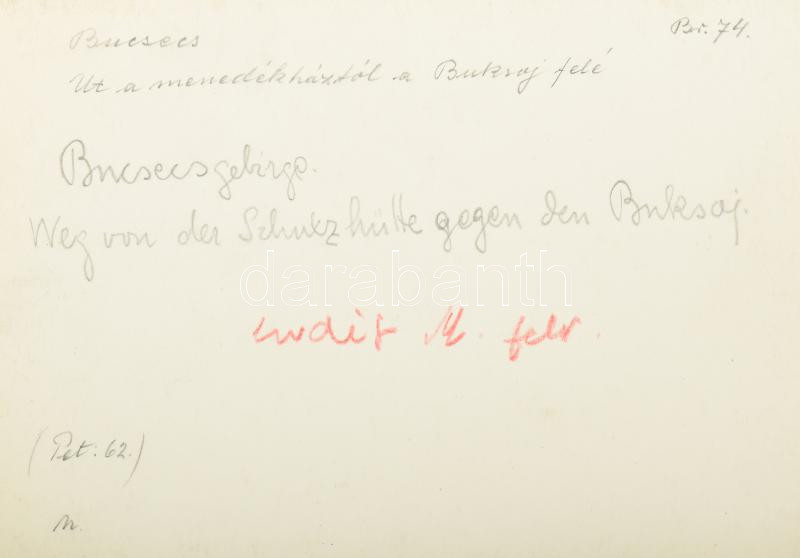 Br. 74.
Bucsecs
Ut a menedékháztól a Buksoj felé
Bucsecsgebirge.
Weg von der Schutzhütte gegen den Buksoj.
darabanth
M. felv.
(Pet. 62.)